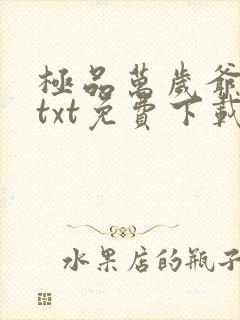 極品萬歲爺
txt免費下載
水果店的瓶子